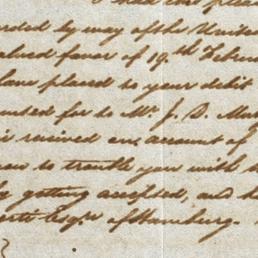 I had the plea
arded by way of the United
alued favor of 19th Febru
have placed to your debit
unted for to Mr. J. D. Ma
received on account of
to trouble you with
by getting accepted, and
Esqr. of Hamburg.